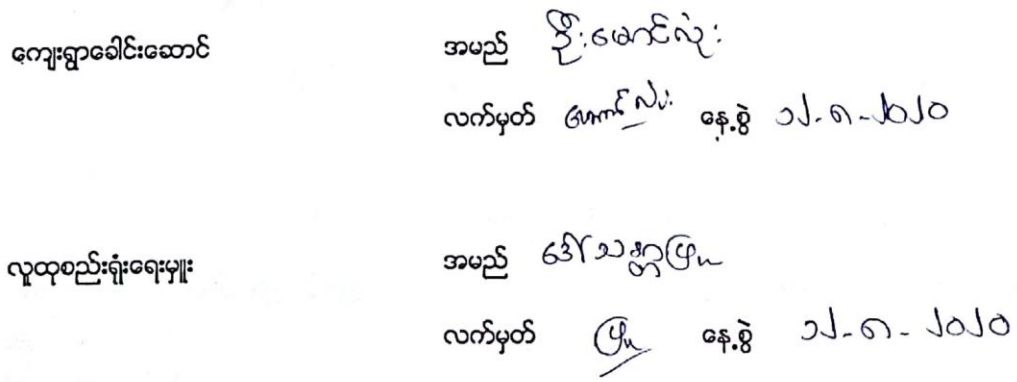 ကျေးရွာခေါင်းဆောင် အမည် ဦးမောင်လုံး
လက်မှတ် မောင်လုံး နေ့စွဲ ၁၂-၈-၂၀၂၀
လူထုစည်းရုံးရေးမှူး အမည် ဒေါ်သဏ္ဍာဖြူ
လက်မှတ် ဖြူ နေ့စွဲ ၁၂-၈-၂၀၂၀